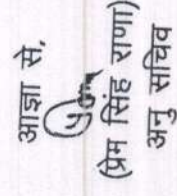 आज्ञा से,
(प्रेम सिंह राणा)
अनु सचिव